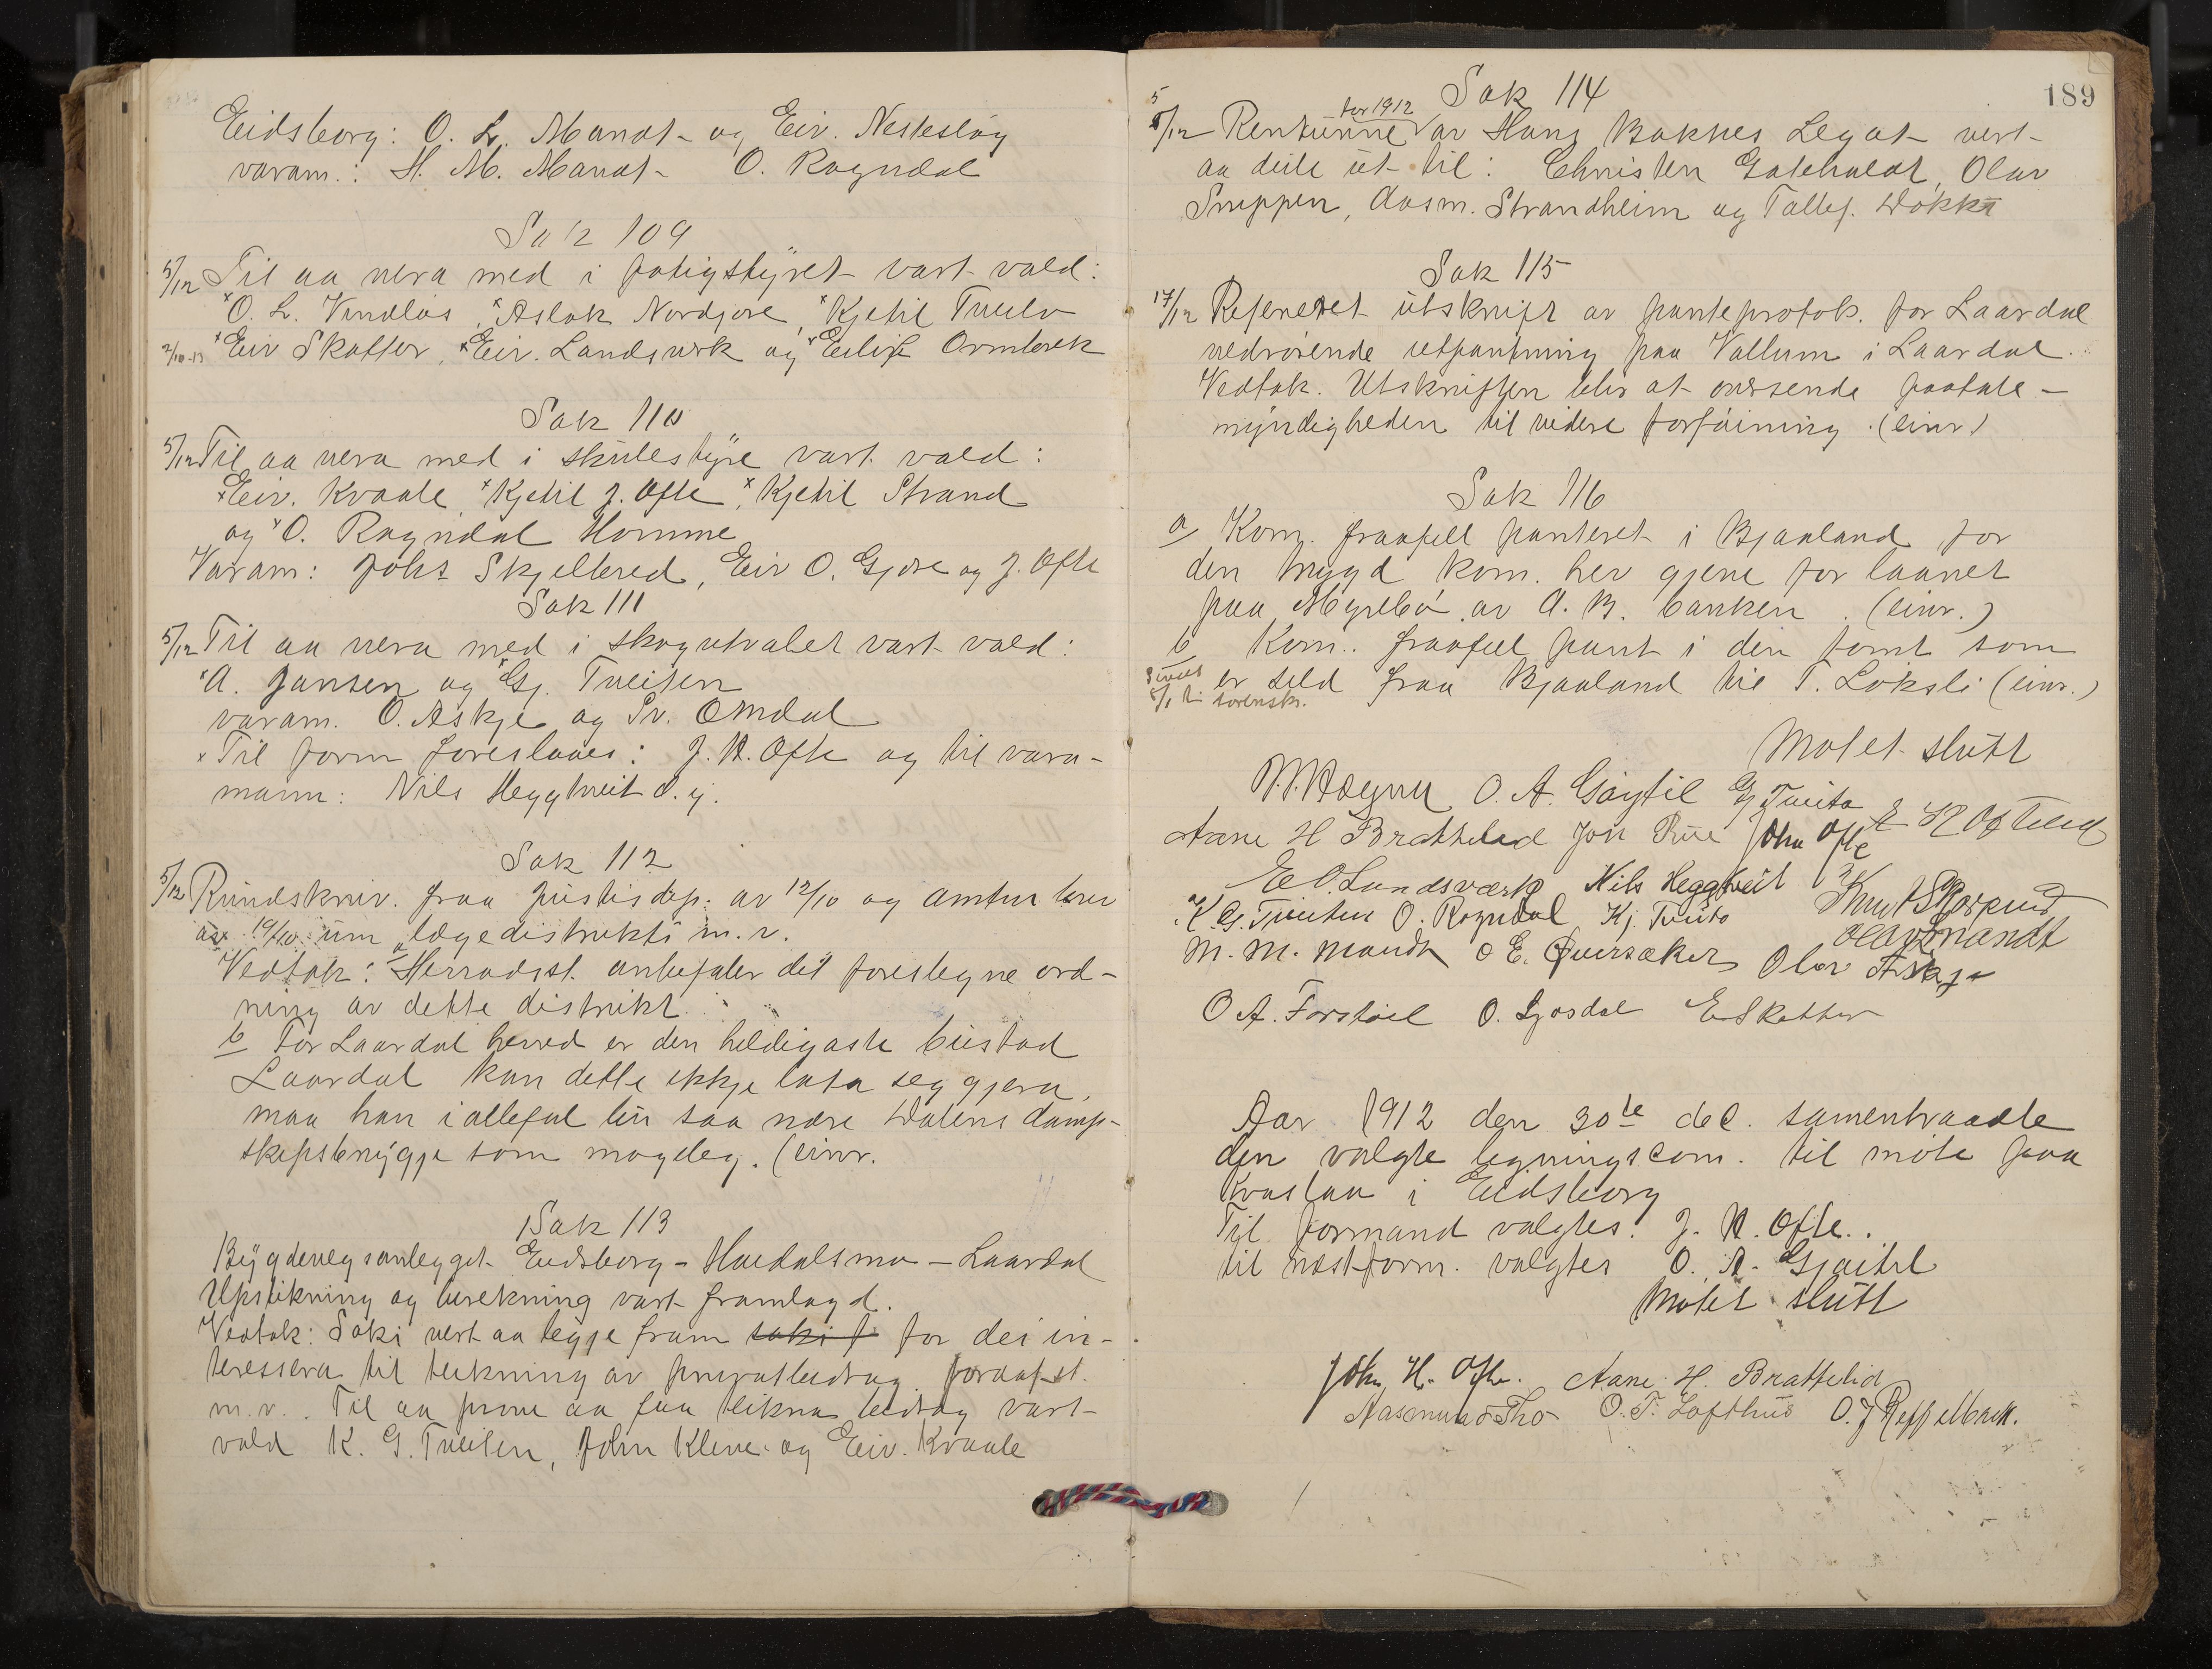 Eidsborg: O. L. Mandt og Eiv. Nestestog
varam.: H. M. Mandt - O. Rogndal
Sak 109
5/12 Til aa vera med i fatigstyret vart vald:
O. L. Vindlas, Aslak Nordgore, Kjetil Tveito
2/10-13 Eiv Skatter, Eiv. Landsverk og Eilif Ormbrek
Sak 110
5/12 Til aa vera med i skulestyre vart vald:
Eiv. Kvaale, Kjetil J. Ofte, Kjetil Strand
og O. Rogndal Homme
Varam: Johs Skjelbred, Eiv O. Gjore og J. Ofte
Sak 111
5/12 Til aa vera med i skogutvalet vart vald:
A. Jansen og Gj. Tveiten
varam. O. Askje og Sv. Omdal
Til form foreslaaes: J. H. Ofte og til vara-
mann: Nils Heggtveit d.y.
Sak 112
5/12 Rundskriv. fraa justisdep. av 12/10 og amtm brev
av 19/10 um lægedistrikti m.v.
Vedtak: a Herradsst. anbefaler dei foreslegne ord-
ning av dette distrikt.
b For Laardal herred er den heldigaste bustad
Laardal kan dette ikkje lata seg gjera,
maa han i allefal bu saa nære Dalens damp-
skipsbrygge som mogeleg. (einr.
Sak 113
Bygdevegsanlegget Eidsborg - Høidalsmo - Laardal
Upstikning og berekning vart framlagd.
Vedtak: Saki vert aa legje fram saki f for dei in-
teressera til teikning av privatbidrag fordafst.
m.v. Til aa prøve aa faa teikna bidrag vart
vald K. G. Tveiten, John Kleve og Eiv. Kvaale
189
Sak 114
for 1912
5/12 Rentunne av Hans Bakkes Legat vert
aa deile ut til: Christen Gatehaldt, Olav
Snippen, Aasm. Strandheim og Tallef. Dokka
Sak 115
17/12 Referetet utskrift av panteprotok. for Laardal
vedrorende utpantning paa Vallum i Laardal.
Vedtak. Utskriften blir at oversende paatale-
myndigheden til videre forføining. (einr)
Sak 116
a Kom. fraafell panteret i Bjaaland for
den brygd kom. her gjene for laanet
paa Myrebø av A. B. banken. (einr.)
b Kom. fraafel pant i den tomt som
er seld fraa Bjaaland til T. Løksli (einr.)
sorenskr.
Motet slutt
O. A. Gøytil Gj Tveito
Aane H Brattelid Jon Rue John Ofte
E O. Landsværk Nils Heggtveit
K. G. Tveiten O. Rogndal Kj. Tveito
Olav Mandt
M. M. Mandt O E. Qversaker Olav Askje
O A. Forstøil O. Gjosdal E Skatter
Aar 1912 den 30te dec. samentraadte
den valgte ligningscom. til møte paa
Kvastaa i Eidsborg
Til formand valgtes: J. H. Ofte.
til næstform. valgtes O. A. Gjaitil
Møtet slutt
John H. Ofte. Aane H. Brattelid
Aasmund Tho O. T. Lofthus O. J Reppelbæk.